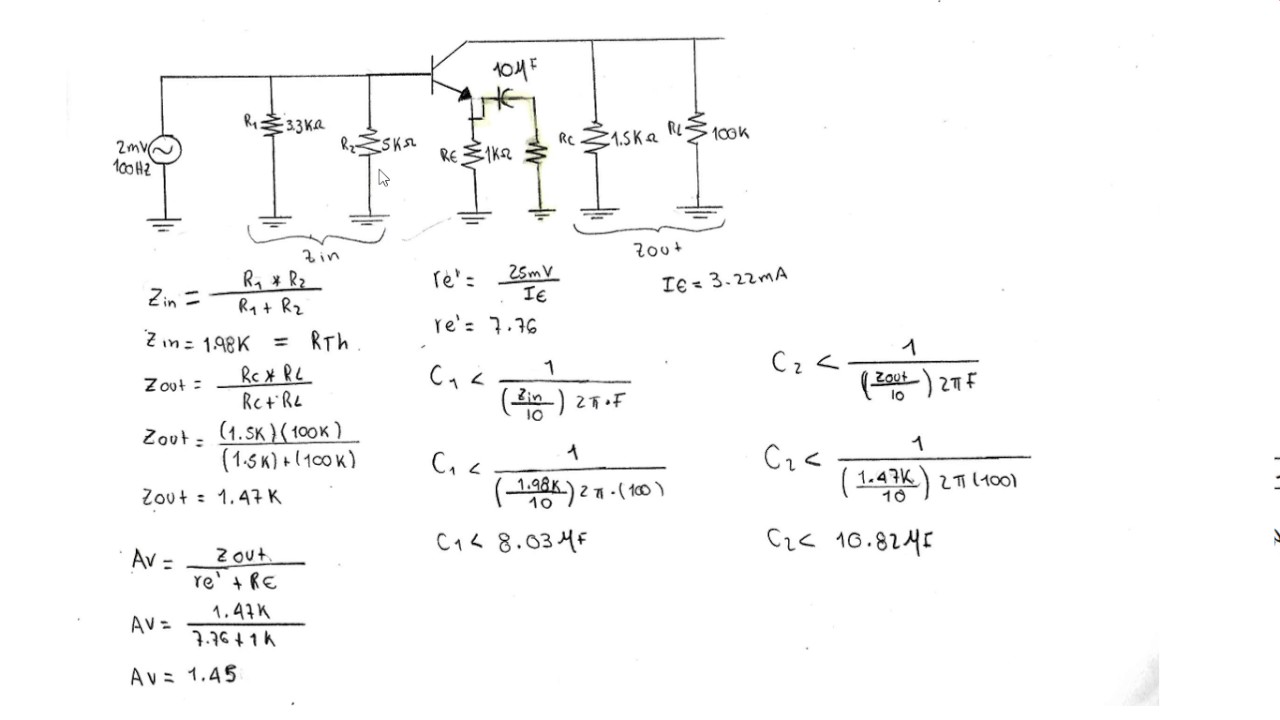 10µF
R1 3.3KΩ
2mV
100Hz
R2 5KΩ
RE 1KΩ
RC 1.5KΩ
RL 100K
Zin
Zout
Zin = R1 * R2 / R1 + R2
Zin = 1.98K = RTh.
Zout = RC * RL / RC + RL
Zout = (1.5K)(100K) / (1.5K)+(100K)
Zout = 1.47K
AV = Zout / re' + RE
AV = 1.47K / 7.76 + 1K
AV = 1.45
re' = 25mV / IE
re' = 7.76
C1 < 1 / (Zin/10) 2π·F
C1 < 1 / (1.98K/10) 2π·(100)
C1 < 8.03µF
IE = 3.22mA
C2 < 1 / (Zout/10) 2πF
C2 < 1 / (1.47K/10) 2π(100)
C2 < 10.82µF